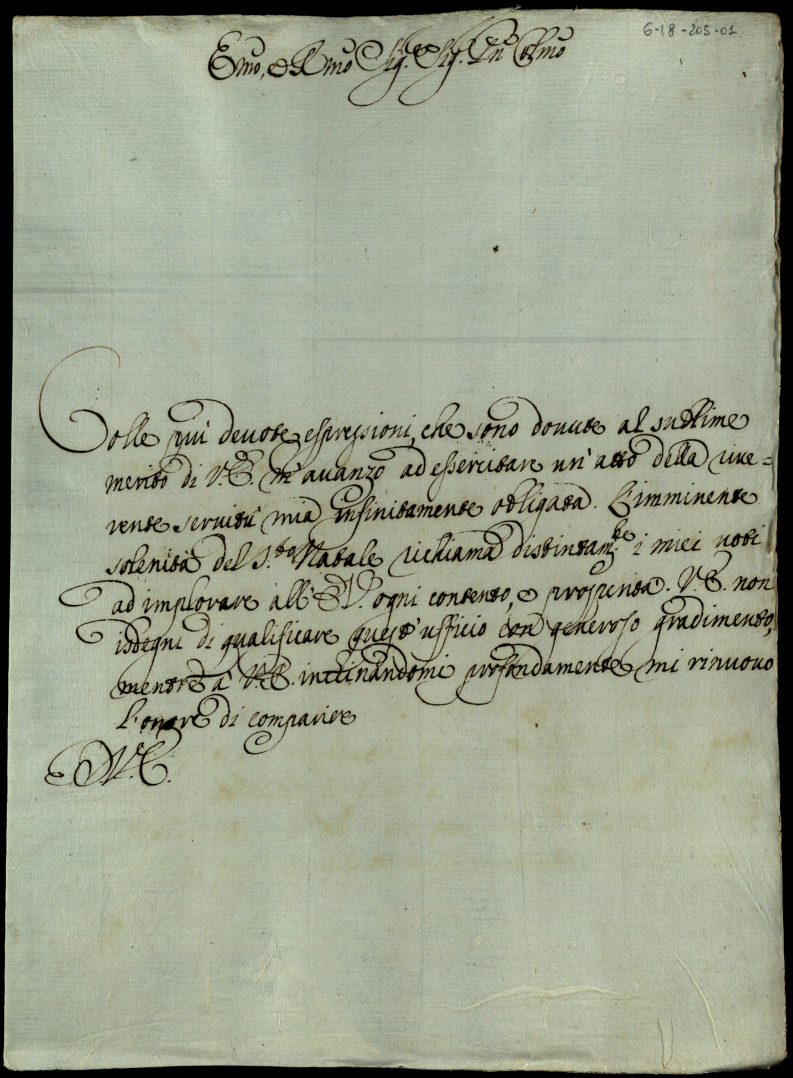 6-18-205-01
Emo, e Rmo Sig.r e Sig.r Pne Colmo
Colle più deuote espressioni, che sono douute al sublime
merito di V.E. m'auanzo ad essercitare un'atto della riue=
rente seruitù mia infinitamente obligata. L'imminente
solenità del S.to Natale richiama distintam.te i miei uoti
ad implorare all'E.V. ogni contento, e prosperità. V.E. non
isdegni di qualificare quest'ufficio con generoso gradimento,
mentre a V.E. inchinandomi profondamente mi rinuouo
l'onore di comparire
D.V.E.